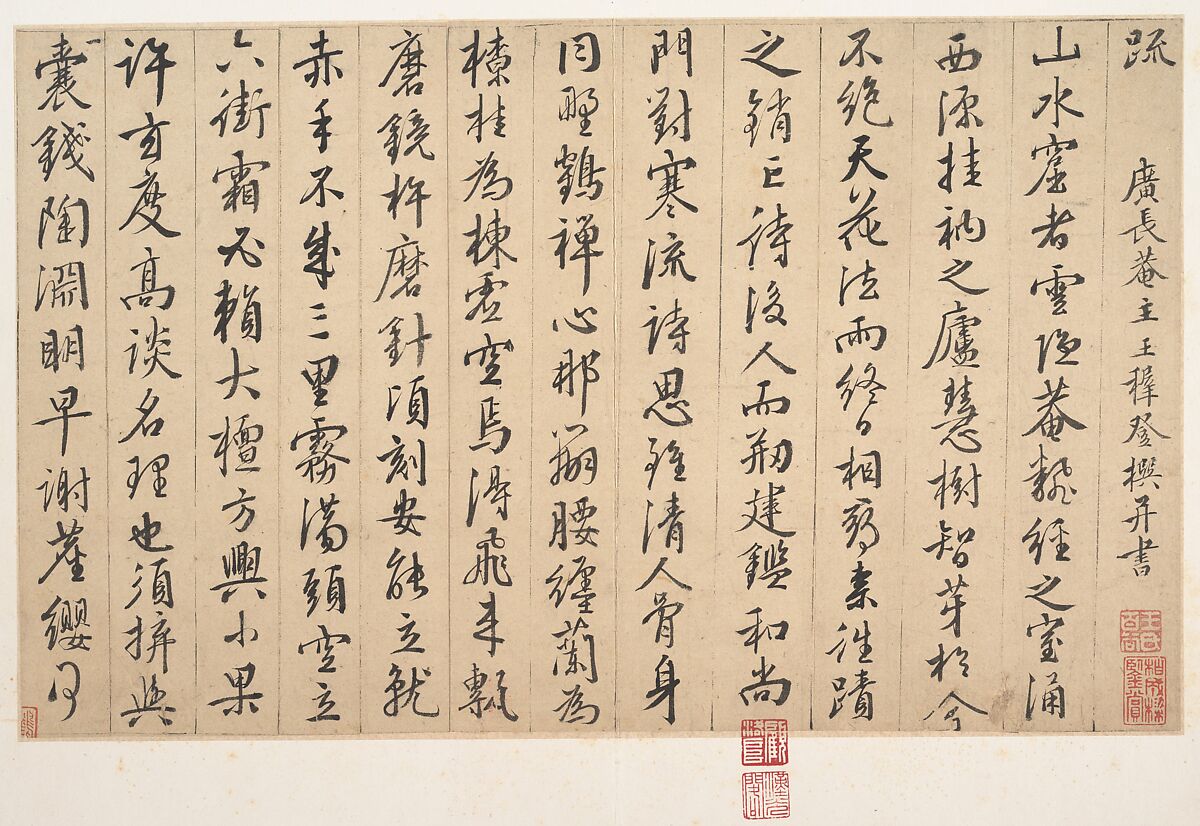 疏 廣長菴主王穉登撰并書
山水窟者雲隱菴翻經之室涌
西源挂衲之廬慧樹智芽於今
不絕天花法雨終日相尋奈往蹟
之銷亡待後人而刱建鑑和尚
門對寒流詩思雖清人骨身
同野鶴禪心那羨腰纏蘭為
橑桂為棟虛空焉得飛來甎
磨鏡杵磨針頃刻安能立就
赤手不成三里霧滿頭空立
六街霜必賴大檀方興小果
許玄度高談名理也須拚與
一囊錢陶淵明早謝塵纓何